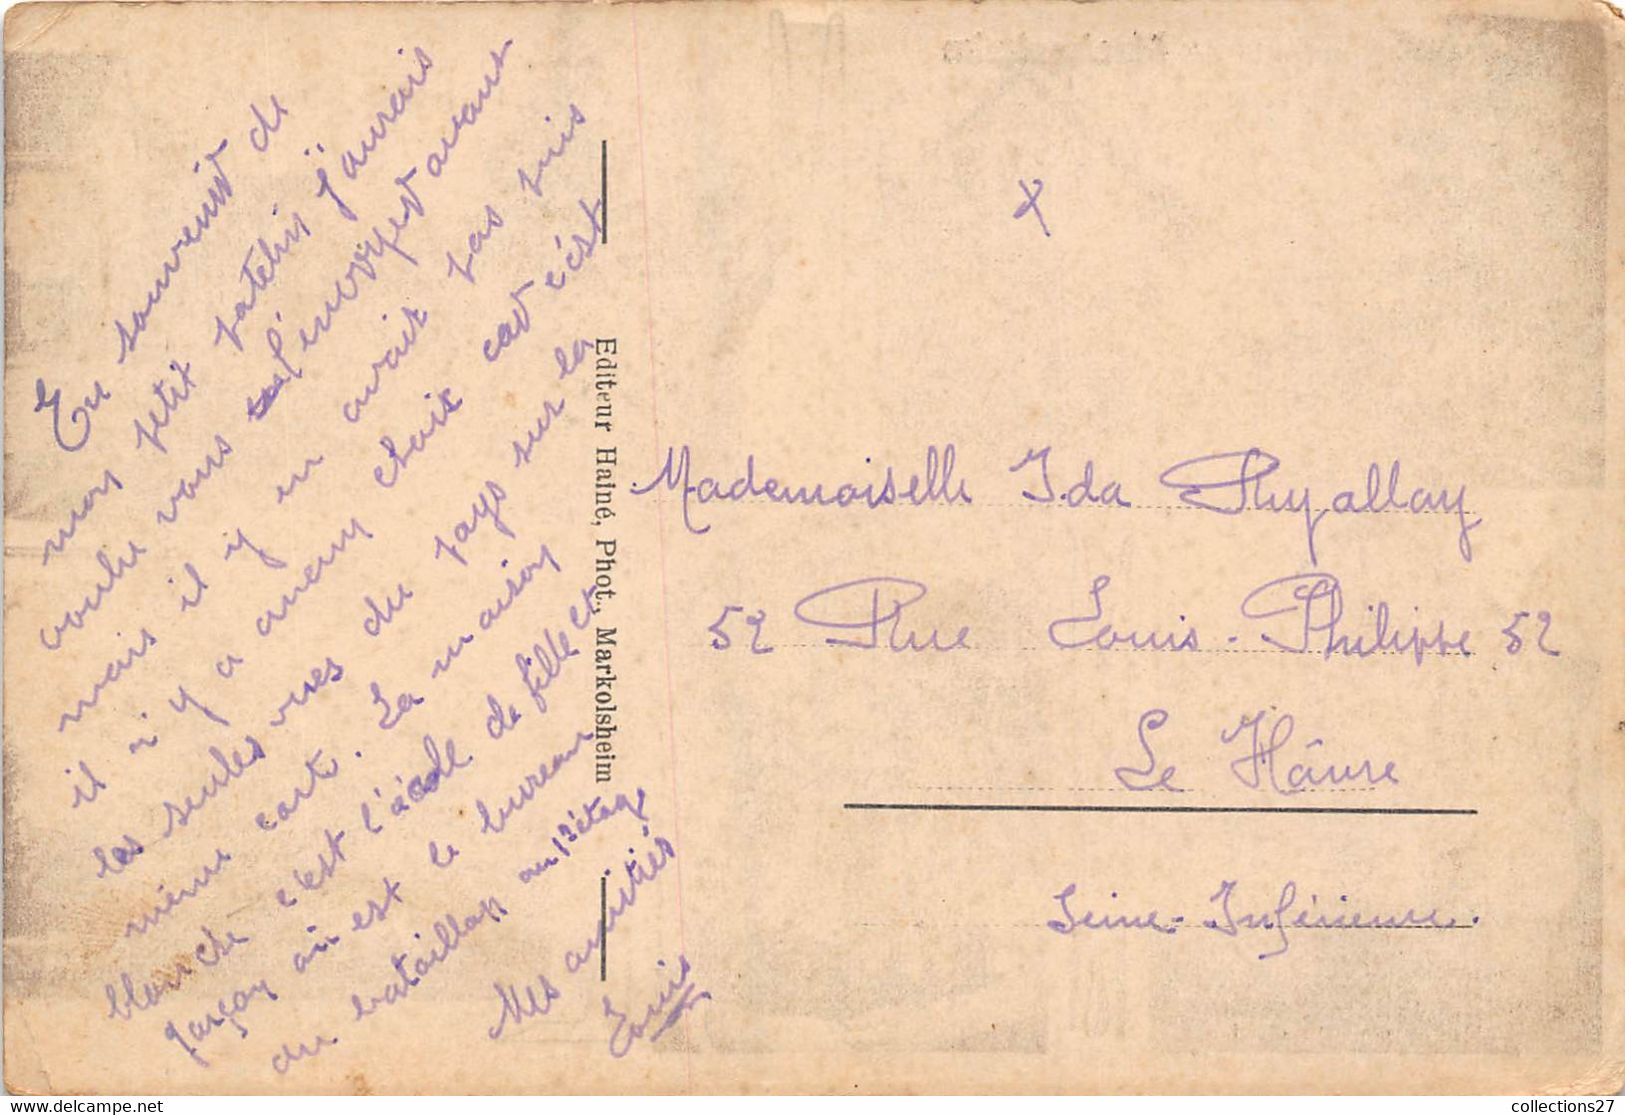 En souvenir de
mon petit patelin j'aurais
voulu vous l'envoyer avant
mais il y en avait pas puis
il n'y a aucun choix car c'est
les seules vues du pays sur la
même carte. La maison
blanche c'est l'école de fille et
garçon où est le bureau
du bataillon au 1er étage
Mes amitiés
Louis
Editeur Hainé, Phot., Markolsheim
Mademoiselle Ida Puyallay
52 Rue Louis-Philippe 52
Le Hâvre
Seine-Inférieure.
collections27